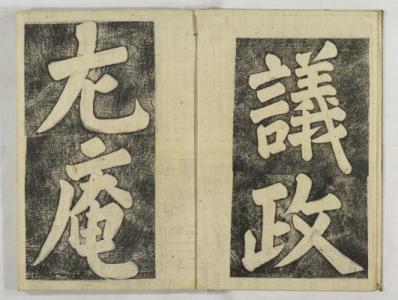 議政
尤庵